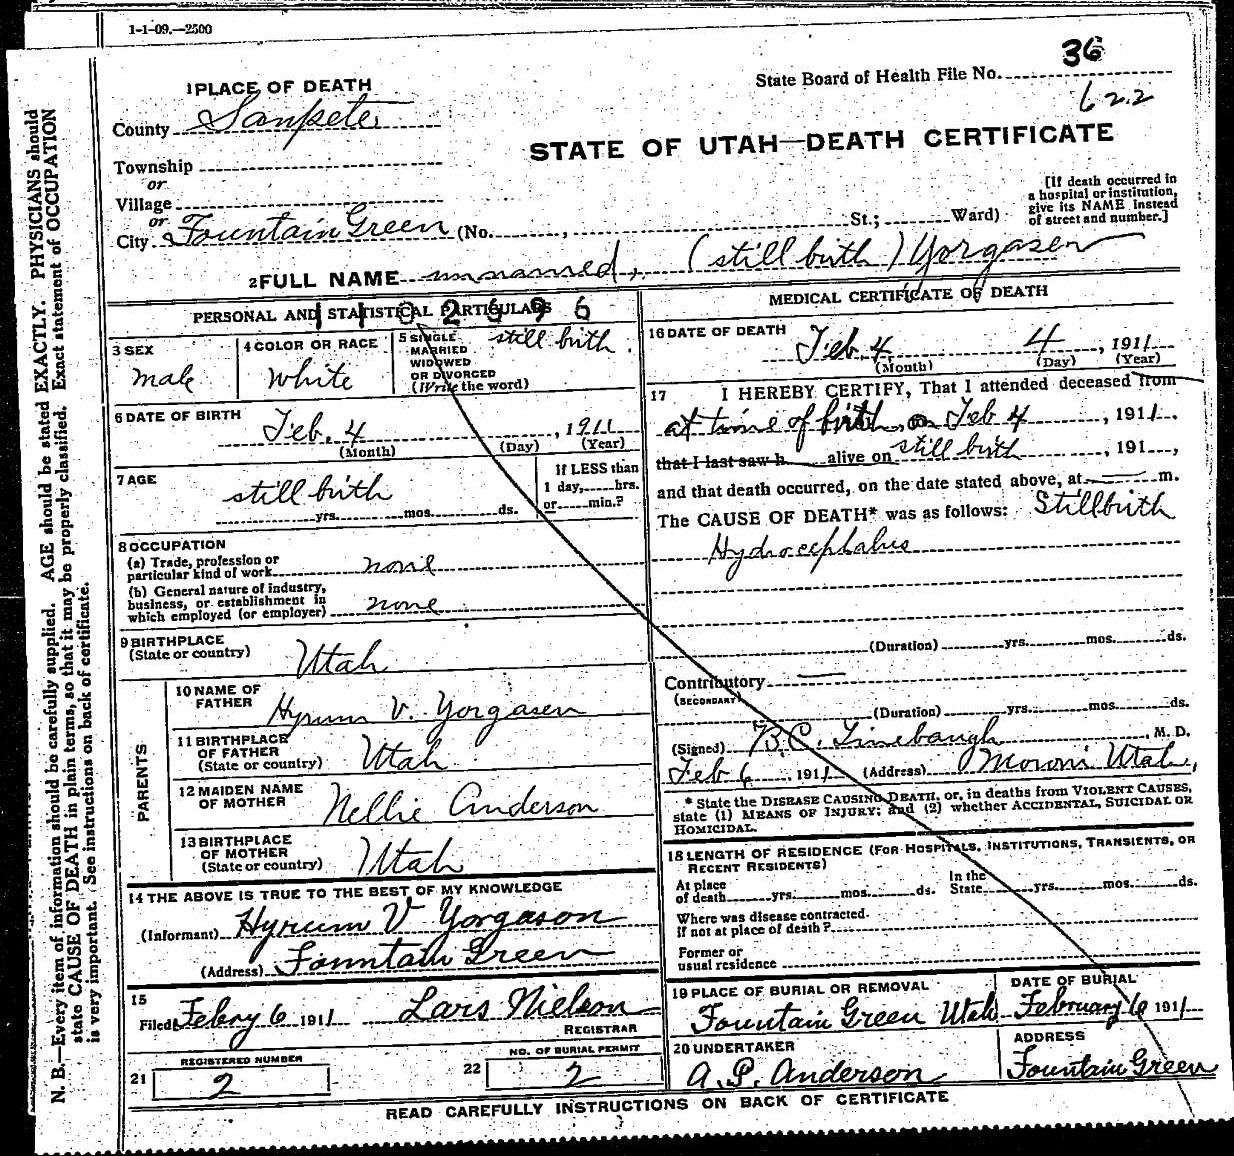 1-1-09.—2500
State Board of Health File No. 36
622
1 PLACE OF DEATH
County Sanpete
STATE OF UTAH—DEATH CERTIFICATE
Township
or
Village
or
City Fountain Green (No. , St.; Ward)
[If death occurred in
a hospital or institution,
give its NAME instead
of street and number.]
2 FULL NAME unnamed, (still birth) Yorgasen
PERSONAL AND STATISTICAL PARTICULARS
1102696
3 SEX
male
4 COLOR OR RACE
White
5 SINGLE
MARRIED
WIDOWED
OR DIVORCED
(Write the word)
still birth.
6 DATE OF BIRTH
Feb. 4, 1911
(Month) (Day) (Year)
7 AGE
still birth
yrs. mos. ds.
If LESS than
1 day, hrs.
or min.?
8 OCCUPATION
(a) Trade, profession or
particular kind of work none
(b) General nature of industry,
business, or establishment in
which employed (or employer) none
9 BIRTHPLACE
(State or country) Utah
PARENTS
10 NAME OF
FATHER Hyrum V. Yorgasen
11 BIRTHPLACE
OF FATHER
(State or country) Utah
12 MAIDEN NAME
OF MOTHER Nellie Anderson
13 BIRTHPLACE
OF MOTHER
(State or country) Utah
14 THE ABOVE IS TRUE TO THE BEST OF MY KNOWLEDGE
(Informant) Hyrum V Yorgason
(Address) Fountain Green
15
Filed Febry 6 1911 Lars Nielson
REGISTRAR
REGISTERED NUMBER
21 2
NO. OF BURIAL PERMIT
22 2
MEDICAL CERTIFICATE OF DEATH
16 DATE OF DEATH
Feb 4 4, 1911
(Month) (Day) (Year)
17 I HEREBY CERTIFY, That I attended deceased from
at time of birth, on Feb 4, 1911.,
that I last saw h alive on still birth, 191 ,
and that death occurred, on the date stated above, at m.
The CAUSE OF DEATH* was as follows: Stillbirth
Hydrocephalus
(Duration) yrs. mos. ds.
Contributory
(SECONDARY)
(Duration) yrs. mos. ds.
(Signed) B.C. Linebaugh, M. D.
Feb 6, 1911 (Address) Moroni Utah,
* State the DISEASE CAUSING DEATH, or, in deaths from VIOLENT CAUSES,
state (1) MEANS OF INJURY; and (2) whether ACCIDENTAL, SUICIDAL OR
HOMICIDAL.
18 LENGTH OF RESIDENCE (FOR HOSPITALS, INSTITUTIONS, TRANSIENTS, OR
RECENT RESIDENTS)
At place
of death yrs. mos. ds.
In the
State yrs. mos. ds.
Where was disease contracted.
if not at place of death?
Former or
usual residence
19 PLACE OF BURIAL OR REMOVAL
Fountain Green Utah
DATE OF BURIAL
February 6 1911
20 UNDERTAKER
A. P. Anderson
ADDRESS
Fountain Green
READ CAREFULLY INSTRUCTIONS ON BACK OF CERTIFICATE
N. B.—Every item of information should be carefully supplied. AGE should be stated EXACTLY. PHYSICIANS should
state CAUSE OF DEATH in plain terms, so that it may be properly classified. Exact statement of OCCUPATION
is very important. See instructions on back of certificate.